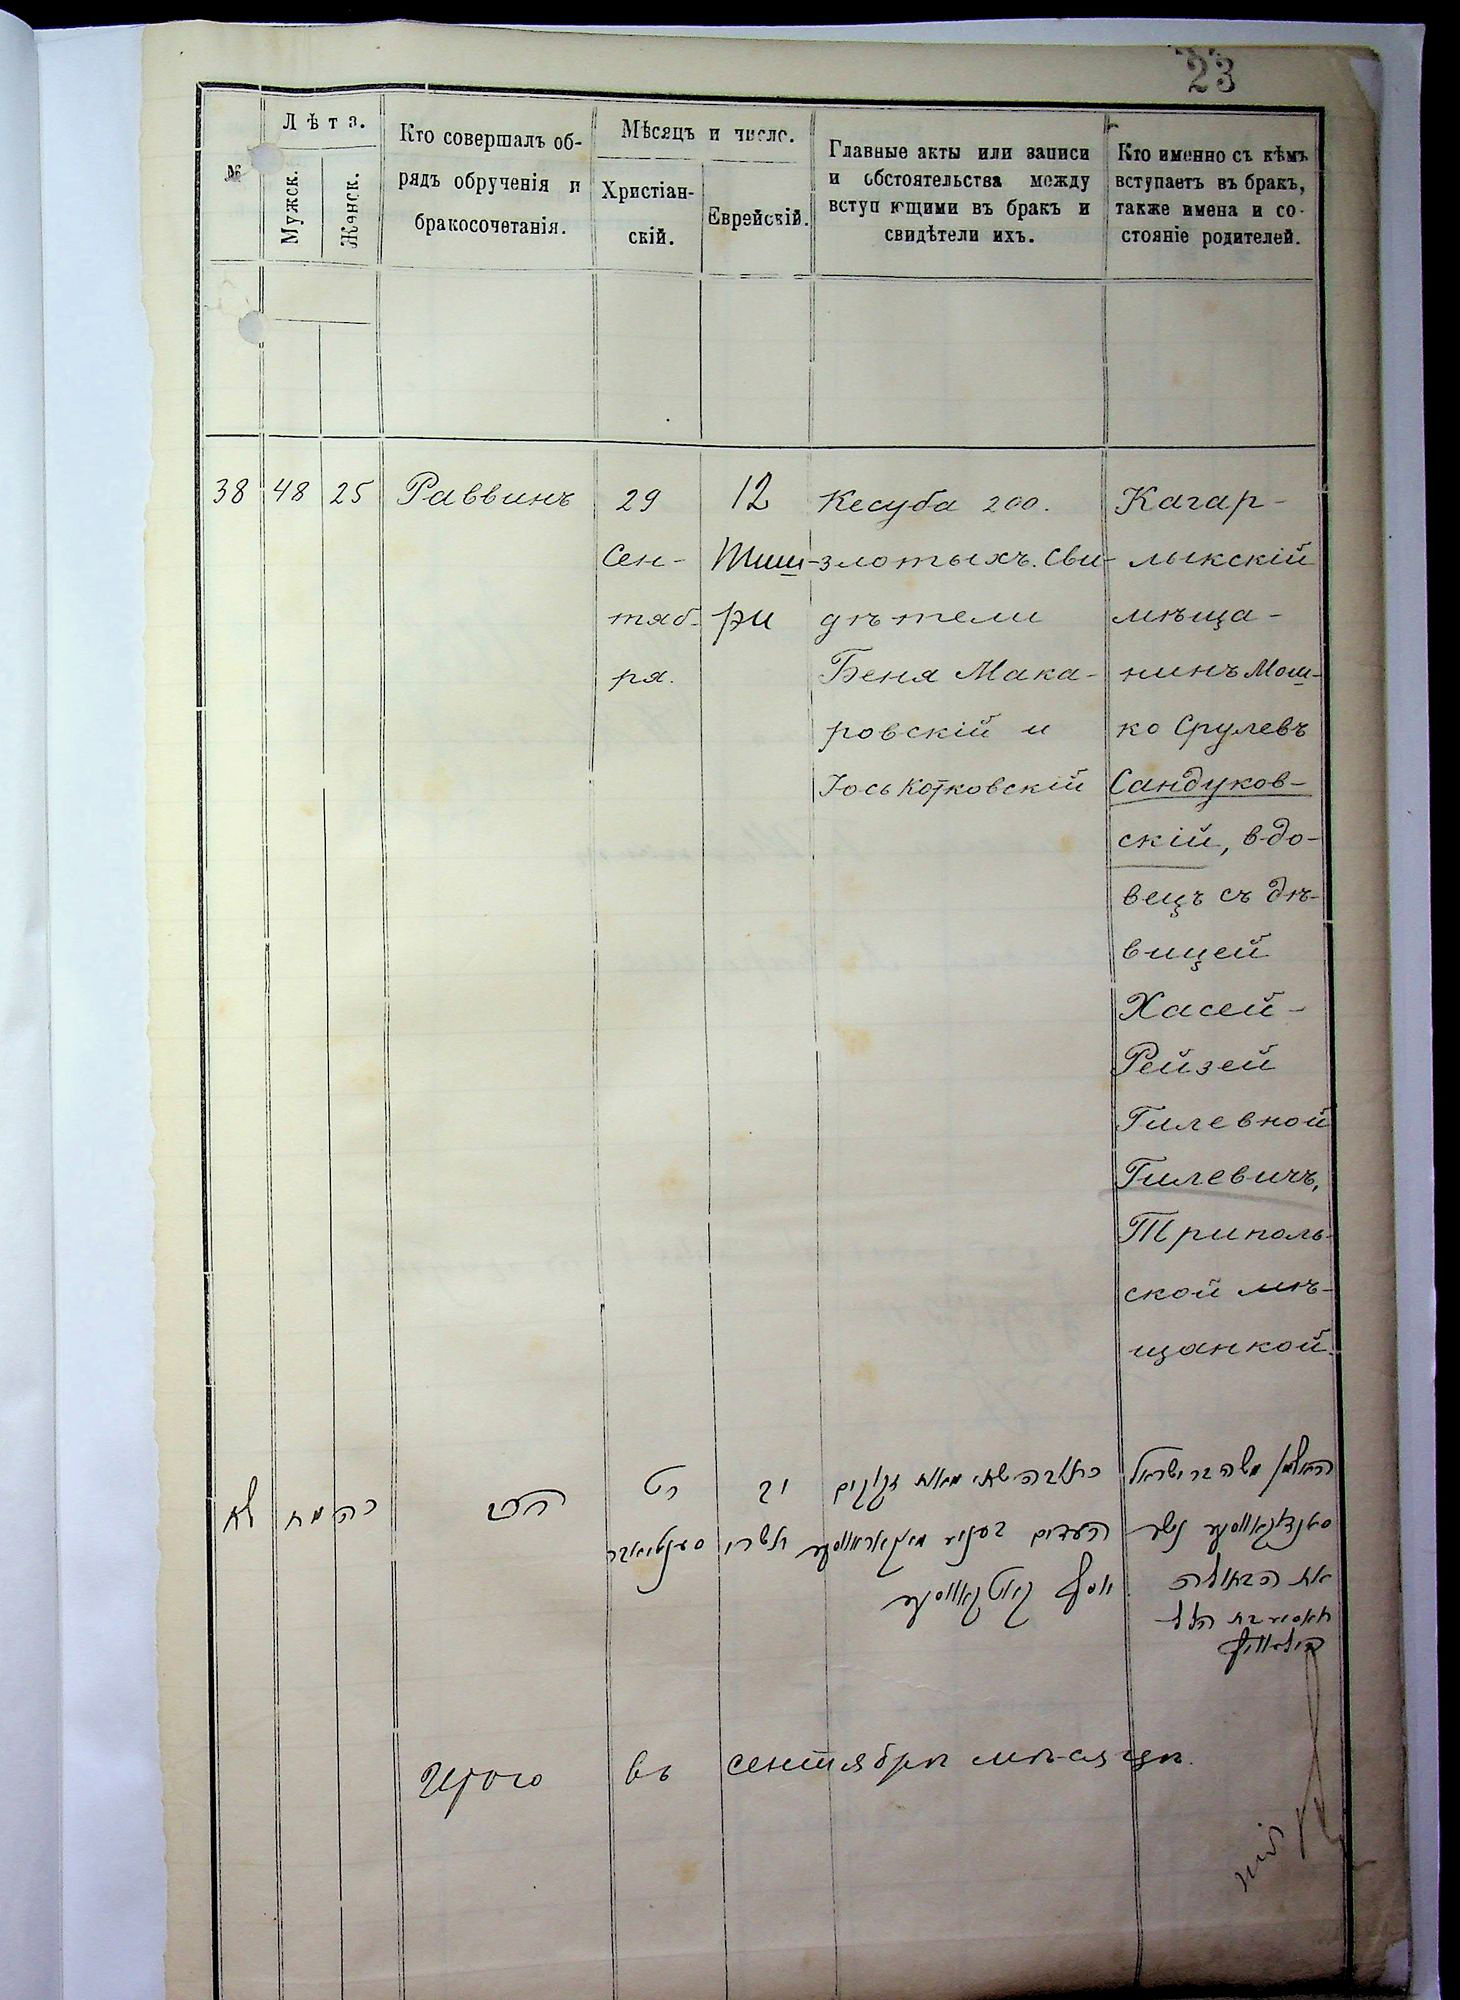 23
№
Лѣта.
Мужск.
Женск.
Кто совершалъ об-
рядъ обрученія и
бракосочетанія.
Мѣсяцъ и число.
Христіан-
скій.
Еврейскій.
Главные акты или записи
и обстоятельства между
вступающими въ бракъ и
свидѣтели ихъ.
Кто именно съ кѣмъ
вступаетъ въ бракъ,
также имена и со-
стояніе родителей.
38
48
25
Раввинъ
29
Сен-
тяб-
ря.
12
Тиш-
ри
Кесуба 200.
злотыхъ. Сви-
дѣтели
Беня Мака-
ровскій и
Іось Котковскій
Кагар-
лыкскій
мѣща-
нинъ Мош-
ко Срулевъ
Сандуков-
скій, вдо-
вецъ съ дѣ-
вицей
Хасей-
Рейзей
Гилевной
Гилевичъ,
Триполь-
ской мѣ-
щанкой.
מח
כה
יב
תשרי
כתובה שתי מאות זקוקים
העדים
יוסף
האלמן משה בר ישראל
את הבתולה
Итого въ сентябрѣ мѣсяцѣ.